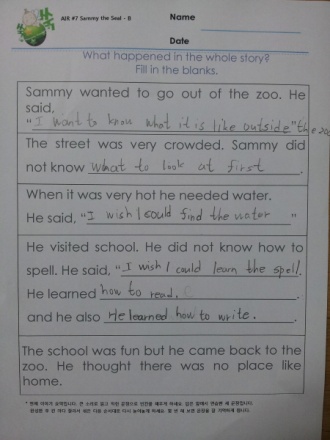 AIR #7 Sammy the Seal - B
Name
Date
What happened in the whole story?
Fill in the blanks.
Sammy wanted to go out of the zoo. He
said,
"I want to know what it is like outside" the zoo
The street was very crowded. Sammy did
not know what to look at first.
When it was very hot he needed water.
He said, "I wish I could find the water"
He visited school. He did not know how to
spell. He said, "I wish I could learn the spell.
He learned how to read.
and he also He learned how to write.
The school was fun but he came back to the
zoo. He thought there was no place like
home.